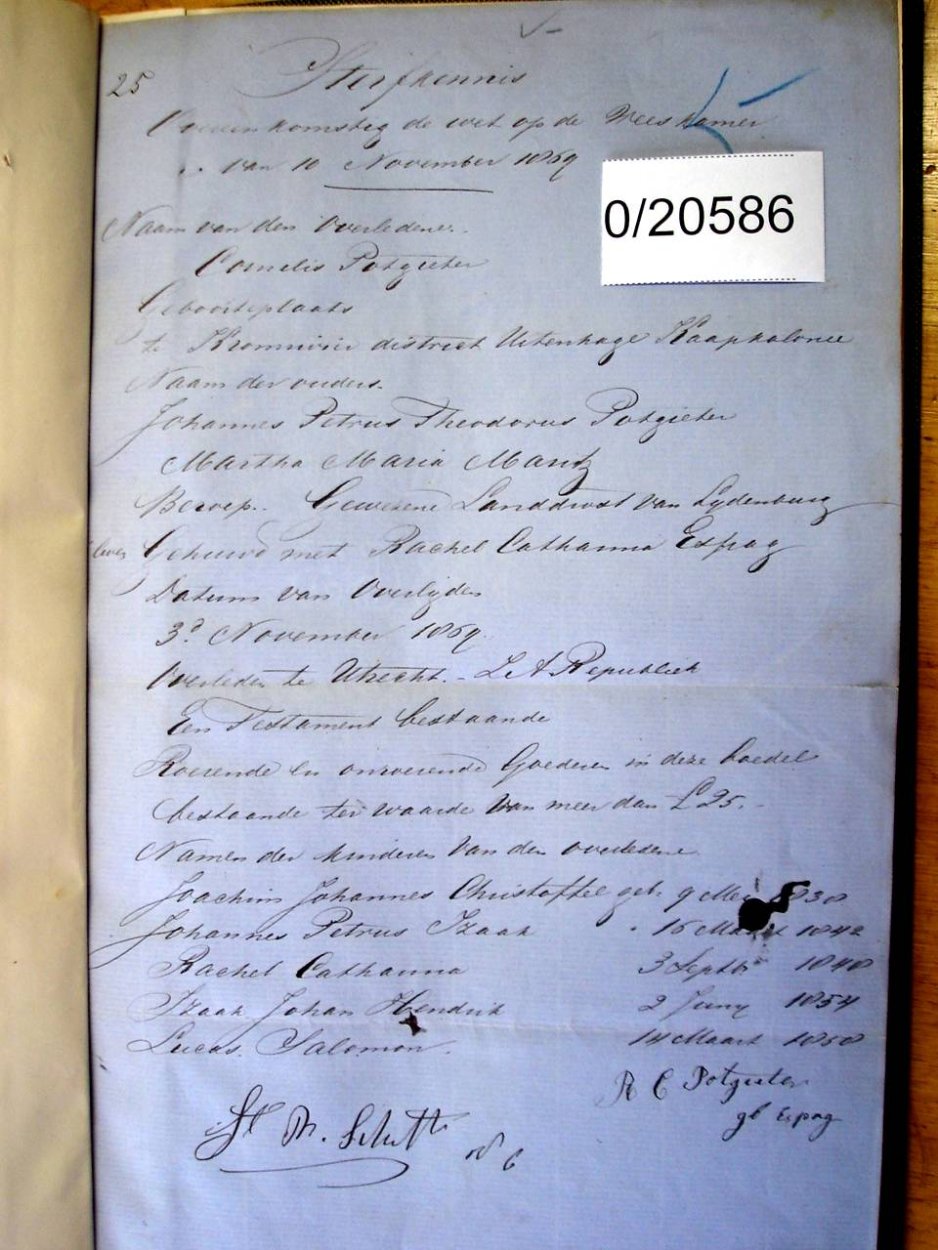 25
Sterfkennis
Overeenkomstig de wet op de Weeskamer
van 10 November 1869
0/20586
Naam van den Overledene.
Cornelis Potgieter
Geboorteplaats
te Kromrivier district Uitenhage Kaapkolonie
Naam der ouders.
Johannes Petrus Theodorus Potgieter
Martha Maria Maritz
Beroep. Gewesene Landdrost van Lydenburg
Gehuwd met Rachel Catharina Espag
Datum van Overlyden
3d November 1869
Overleden te Utrecht. - Z A Republiek
Een Testament bestaande
Roerende en onroerende Goederen in deze boedel
bestaande ter waarde van meer dan £25.-
Namen der kinderen van den overledene
Joachim Johannes Christoffel geb. 9 Mei
Johannes Petrus Izaak 16 Maart
Rachel Catharina 3 Septbr
Izaak Johan Hendrik 2 Juny 1854
Lucas Salomon. 14 Maart
R C Potgieter
gb Espag